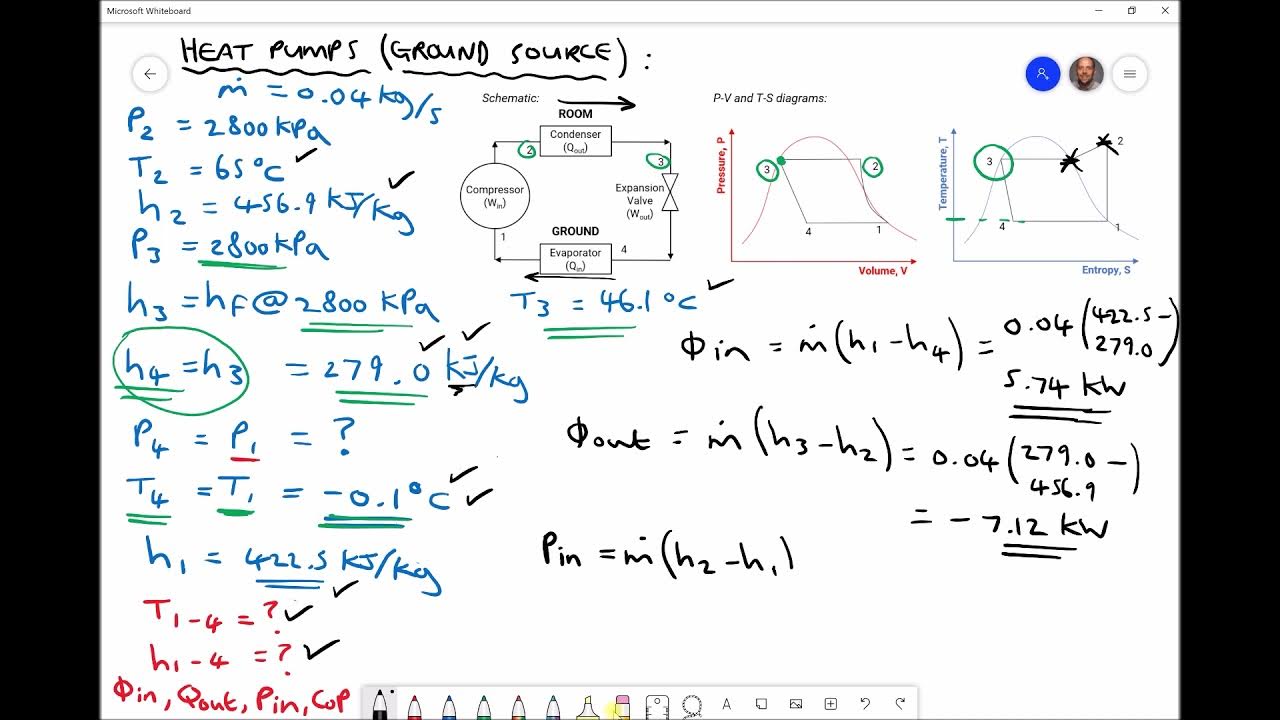 Microsoft Whiteboard
HEAT PUMPS (GROUND SOURCE) :
ṁ = 0.04 kg/s
P2 = 2800 kPa
T2 = 65°C ✓
h2 = 456.9 kJ/kg ✓
P3 = 2800 kPa
h3 = hf @ 2800 kPa
T3 = 46.1°C ✓
h4 = h3 = 279.0 kJ/kg ✓ ✓
P4 = P1 = ?
T4 = T1 = -0.1°C ✓ ✓
h1 = 422.5 kJ/kg ✓
T1-4 = ? ✓
h1-4 = ? ✓
Φin, Qout, Pin, CoP
Schematic:
ROOM
Condenser
(Qout)
2
3
Compressor
(Win)
Expansion
Valve
(Wout)
1
GROUND
4
Evaporator
(Qin)
P-V and T-S diagrams:
Pressure, P
3
2
4
1
Volume, V
Temperature, T
2
3
4
1
Entropy, S
Φin = ṁ(h1 - h4) = 0.04 (422.5 -
279.0)
5.74 kW
Φout = ṁ (h3 - h2) = 0.04 (279.0 -
456.9)
= - 7.12 kW
Pin = ṁ (h2 - h1)
A